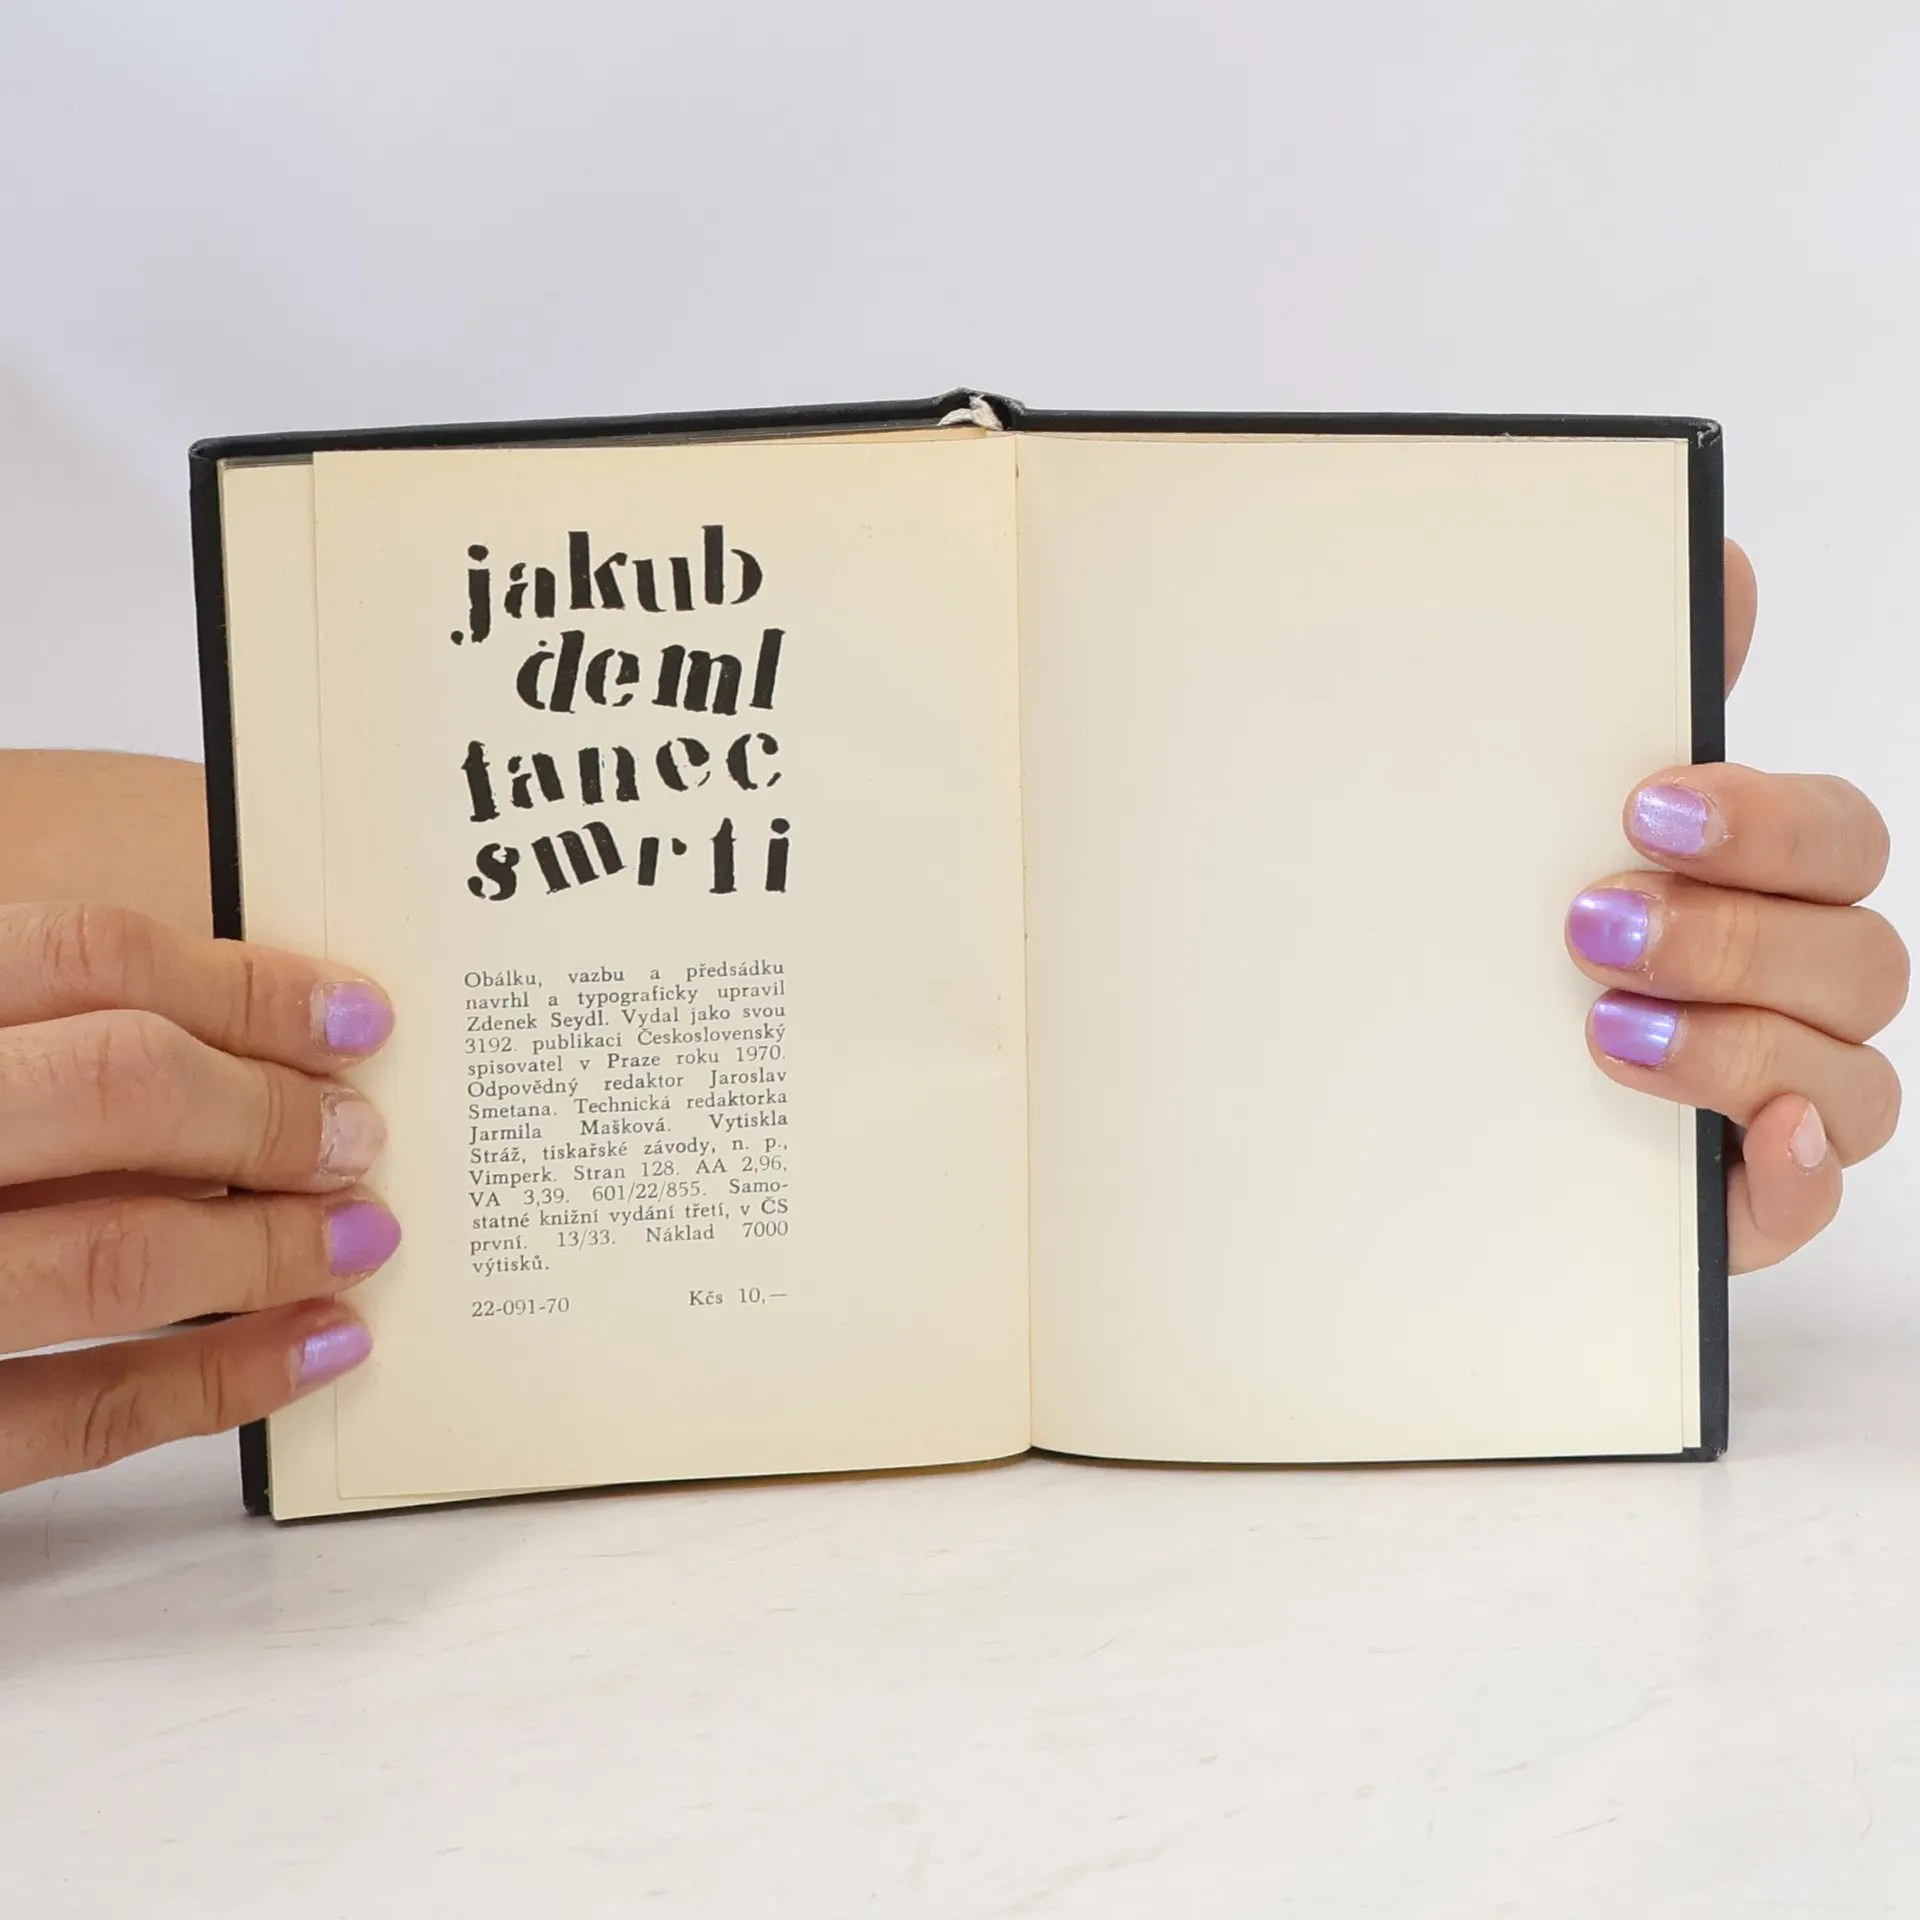 jakub
deml
tanec
smrti
Obálku, vazbu a předsádku
navrhl a typograficky upravil
Zdenek Seydl. Vydal jako svou
3192. publikaci Československý
spisovatel v Praze roku 1970.
Odpovědný redaktor Jaroslav
Smetana. Technická redaktorka
Jarmila Mašková. Vytiskla
Stráž, tiskařské závody, n. p.,
Vimperk. Stran 128. AA 2,96,
VA 3,39. 601/22/855. Samo-
statné knižní vydání třetí, v ČS
první. 13/33. Náklad 7000
výtisků.
22-091-70 Kčs 10,—